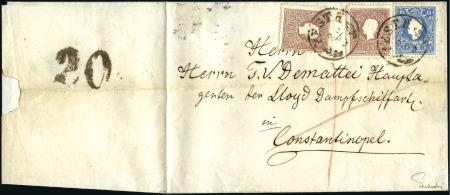 PESTH
PESTH
20
Herrn
Herrn T. V. Demattei Haupta
genten der Lloyd Dampfschiffart
in
Constantinopel.